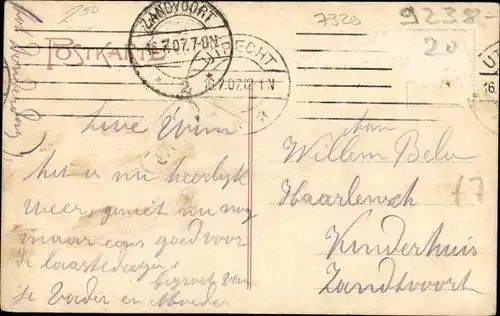 250
7320
9238-
20
POSTKARTE
ZANDVOORT
16.7.07.7-8N
2
UTRECHT
16.7.07.12-1N
U
16.
Lieve Wim
het is nu heerlijk
weer, geniet nu nog
maar eens goed voor
de laatste dagen
gegroet van
je Vader en Moeder
Willem Belu
Haarlemsch
Kinderhuis
Zandvoort
17